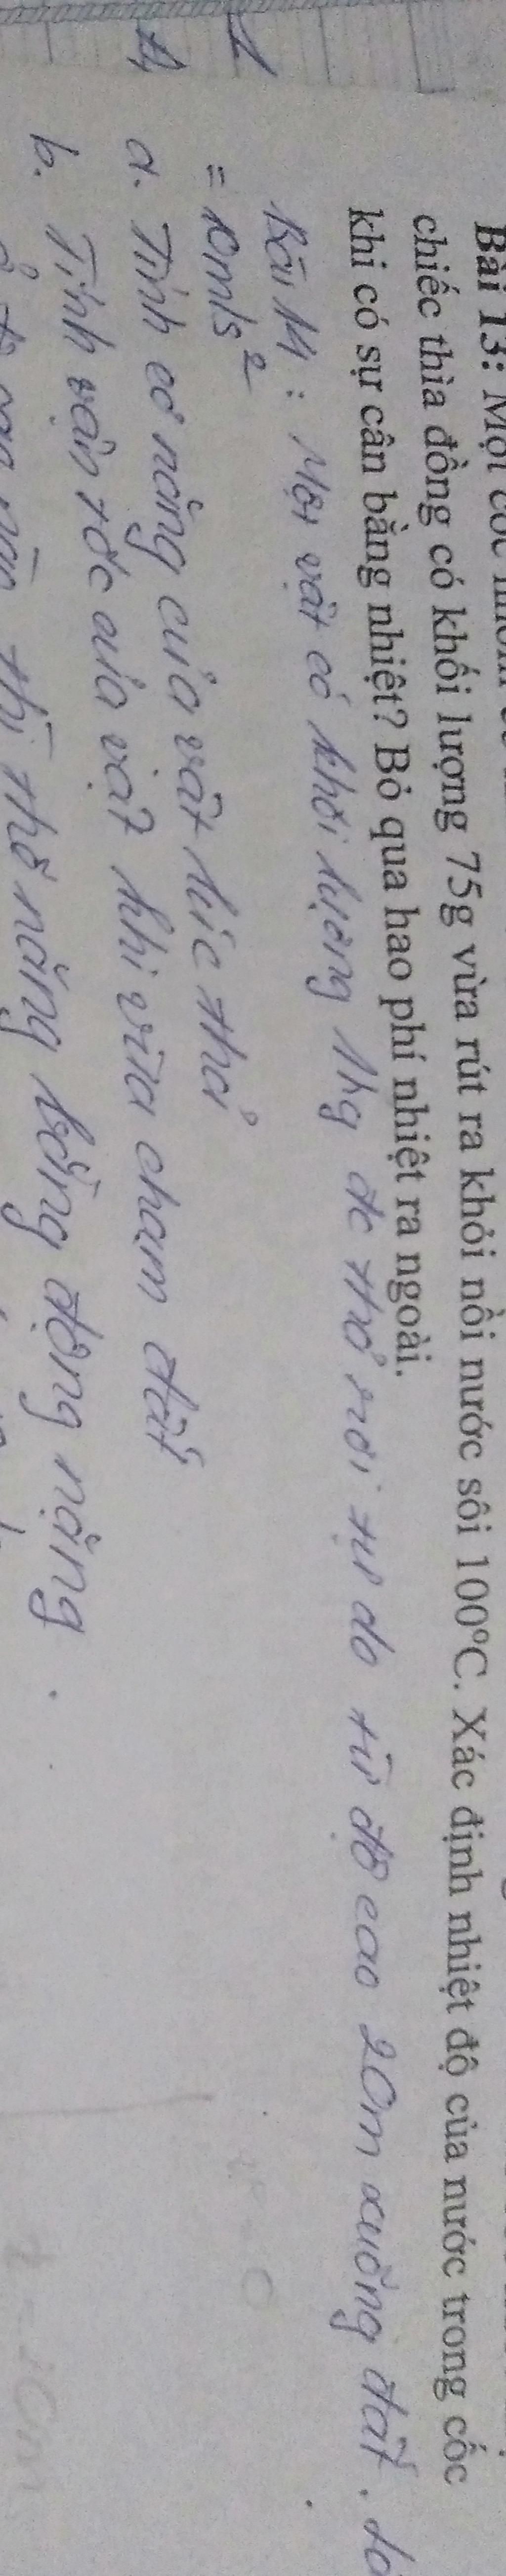 Bài 13: Một cốc nhôm
chiếc thìa đồng có khối lượng 75g vừa rút ra khỏi nồi nước sôi 100°C. Xác định nhiệt độ của nước trong cốc
khi có sự cân bằng nhiệt? Bỏ qua hao phí nhiệt ra ngoài.
Bài 14: Một vật có khối lượng 1kg đc thả rơi tự do từ độ cao 20m xuống đất. lấ
= 10m/s²
a. Tính cơ năng của vật lúc thả
b. Tính vận tốc của vật khi vừa chạm đất
thì thế năng bằng động năng.